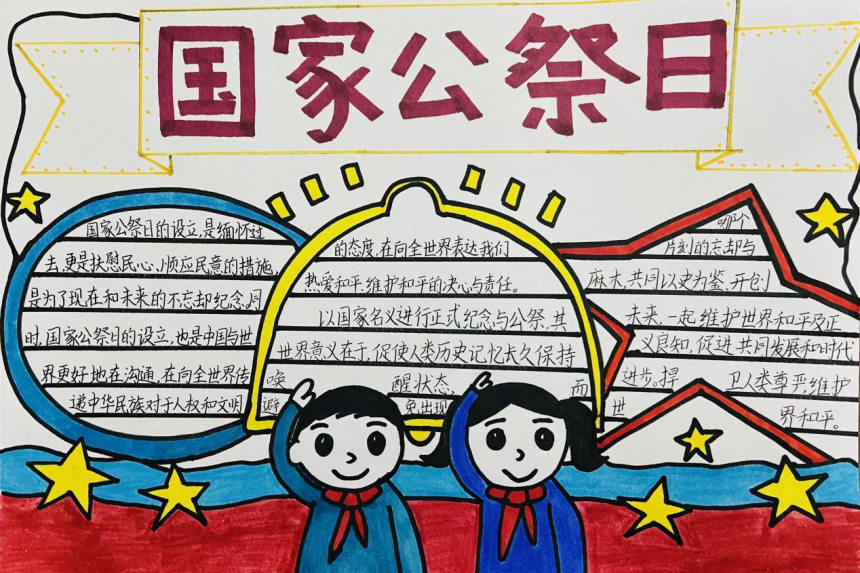 国家公祭日
国家公祭日的设立,是缅怀过
去,更是抚慰民心、顺应民意的措施,
是为了现在和未来的不忘却纪念。同
时,国家公祭日的设立,也是中国与世
界更好地在沟通,在向全世界传
递中华民族对于人权和文明
的态度,在向全世界表达我们
热爱和平,维护和平的决心与责任。
以国家名义进行正式纪念与公祭,其
世界意义在于,促使人类历史记忆长久保持
唤醒状态,而
避免出现
哪个
片刻的忘却与
麻木,共同以史为鉴,开创
未来,一起维护世界和平及正
义良知,促进共同发展和时代
进步。捍卫人类尊严,维护
世界和平。